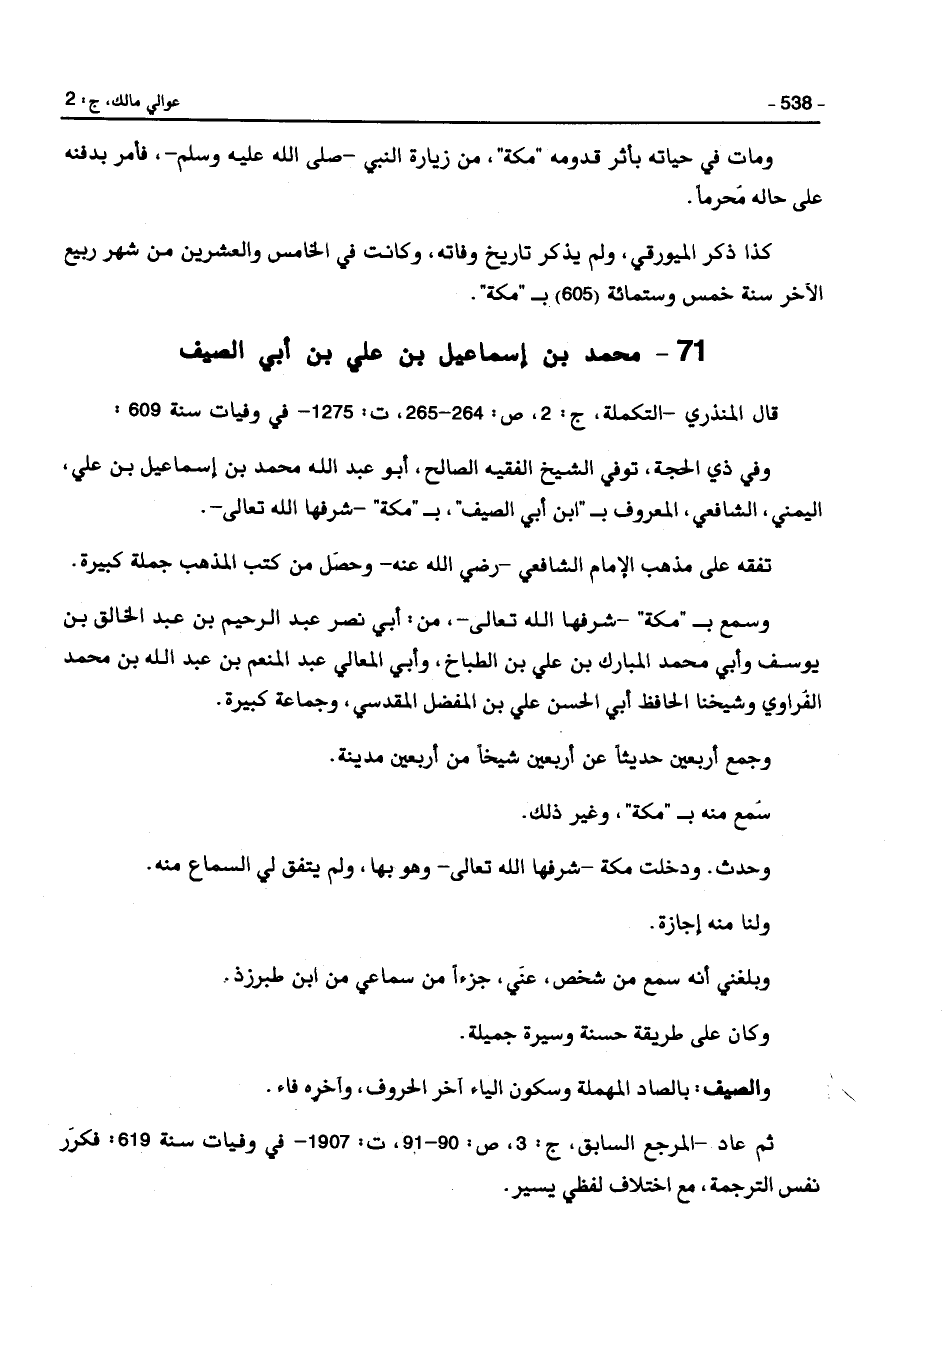 - 538 -
عوالي مالك، ج: 2
ومات في حياته بأثر قدومه "مكة"، من زيارة النبي –صلى الله عليه وسلم–، فأمر بدفنه
على حاله مُحرماً.
كذا ذكر الميورقي، ولم يذكر تاريخ وفاته، وكانت في الخامس والعشرين من شهر ربيع
الآخر سنة خمس وستمائة (605) بـ "مكة".
71 - محمد بن إسماعيل بن علي بن أبي الصيف
قال المنذري –التكملة، ج: 2، ص: 264–265، ت: 1275– في وفيات سنة 609 :
وفي ذي الحجة، توفي الشيخ الفقيه الصالح، أبو عبد الله محمد بن إسماعيل بن علي،
اليمني، الشافعي، المعروف بـ "ابن أبي الصيف"، بـ "مكة" –شرفها الله تعالى–.
تفقه على مذهب الإمام الشافعي –رضي الله عنه– وحصّل من كتب المذهب جملة كبيرة.
وسمع بـ "مكة" –شرفها الله تعالى–، من: أبي نصر عبد الرحيم بن عبد الخالق بن
يوسف وأبي محمد المبارك بن علي بن الطباخ، وأبي المعالي عبد المنعم بن عبد الله بن محمد
الفُراوي وشيخنا الحافظ أبي الحسن علي بن المفضل المقدسي، وجماعة كبيرة.
وجمع أربعين حديثاً عن أربعين شيخاً من أربعين مدينة.
سُمع منه بـ "مكة"، وغير ذلك.
وحدث. ودخلت مكة –شرفها الله تعالى– وهو بها، ولم يتفق لي السماع منه.
ولنا منه إجازة.
وبلغني أنه سمع من شخص، عنّي، جزءاً من سماعي من ابن طبرزذ.
وكان على طريقة حسنة وسيرة جميلة.
والصيف: بالصاد المهملة وسكون الياء آخر الحروف، وآخره فاء.
ثم عاد –المرجع السابق، ج: 3، ص: 90–91، ت: 1907– في وفيات سنة 619: فكرّر
نفس الترجمة، مع اختلاف لفظي يسير.